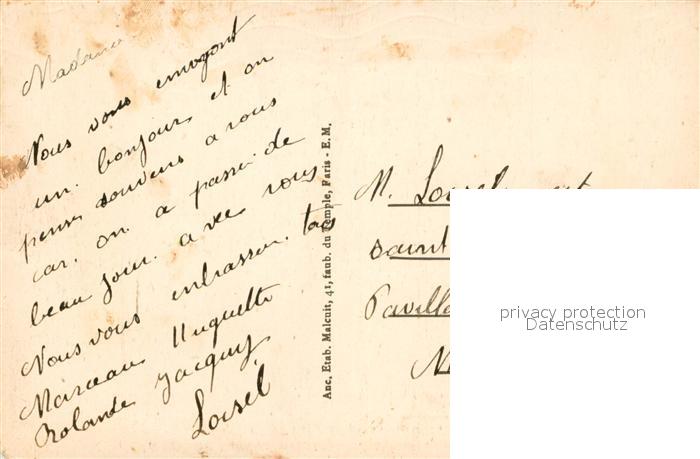 Madame
Nous vous envoyont
un bonjour et on
pense souvens a vous
car on a passé de
beau jour avec vous
Nous vous embrasson tous
Marceau Huguette
Rolande Jacquy
Loisel
Anc. Etab. Malcuit, 41, faub. du Temple, Paris - E. M.
M. Loisel
saint
privacy protection
Datenschutz